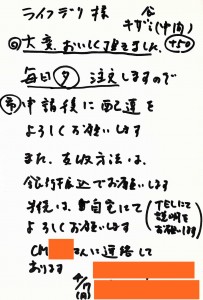 ライフデリ様
キザミ(中間)
◎大変、おいしく頂きました。+50
毎日夕注文しますので
申請後に配達を
よろしくお願いします
また、支払方法は、
銀行振込でお願いします
自宅にて
よろしくお願いします
(TELにて説明をお願いします)
CM さんに連絡して
おります
4/17(月)